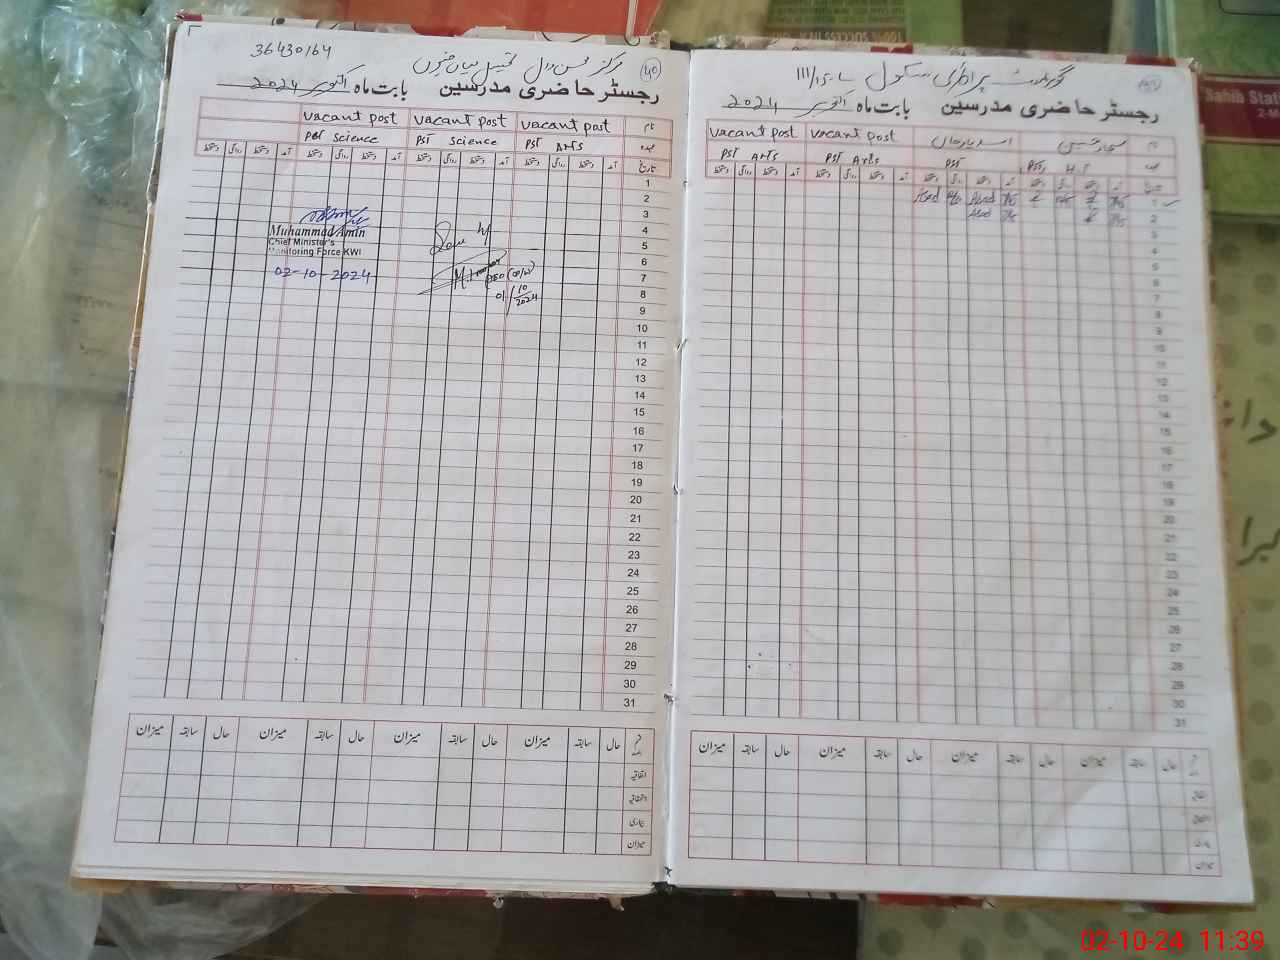 گورنمنٹ پرائمری سکول 111/15-L
رجسٹر حاضری مدرسین بابت ماہ اکتوبر 2024
نام
vacant post vacant post
عہدہ
PST H.T
PST
PST Arts PST Arts
تاریخ
1
2
3
4
5
6
7
8
9
10
11
12
13
14
15
16
17
18
19
20
21
22
23
24
25
26
27
28
29
30
31
حال سابقہ میزان حال سابقہ میزان حال سابقہ میزان حال سابقہ میزان
میزان
36430164
مرکز محسن وال تحصیل میاں چنوں
40
رجسٹر حاضری مدرسین بابت ماہ اکتوبر 2024
نام
vacant post vacant post vacant post
عہدہ
PST Science PST Science PST Arts
تاریخ
1
2
3
4
5
6
7
8
9
10
11
12
13
14
15
16
17
18
19
20
21
22
23
24
25
26
27
28
29
30
31
Muhammad Amin
Chief Minister's
Monitoring Force KWI
02-10-2024
01/10/2024
حال سابقہ میزان حال سابقہ میزان حال سابقہ میزان حال سابقہ میزان
اتفاقیہ
استحقاقیہ
بیماری
میزان
100% SUCCESS IN
Sahib Stati
02-10-24 11:39